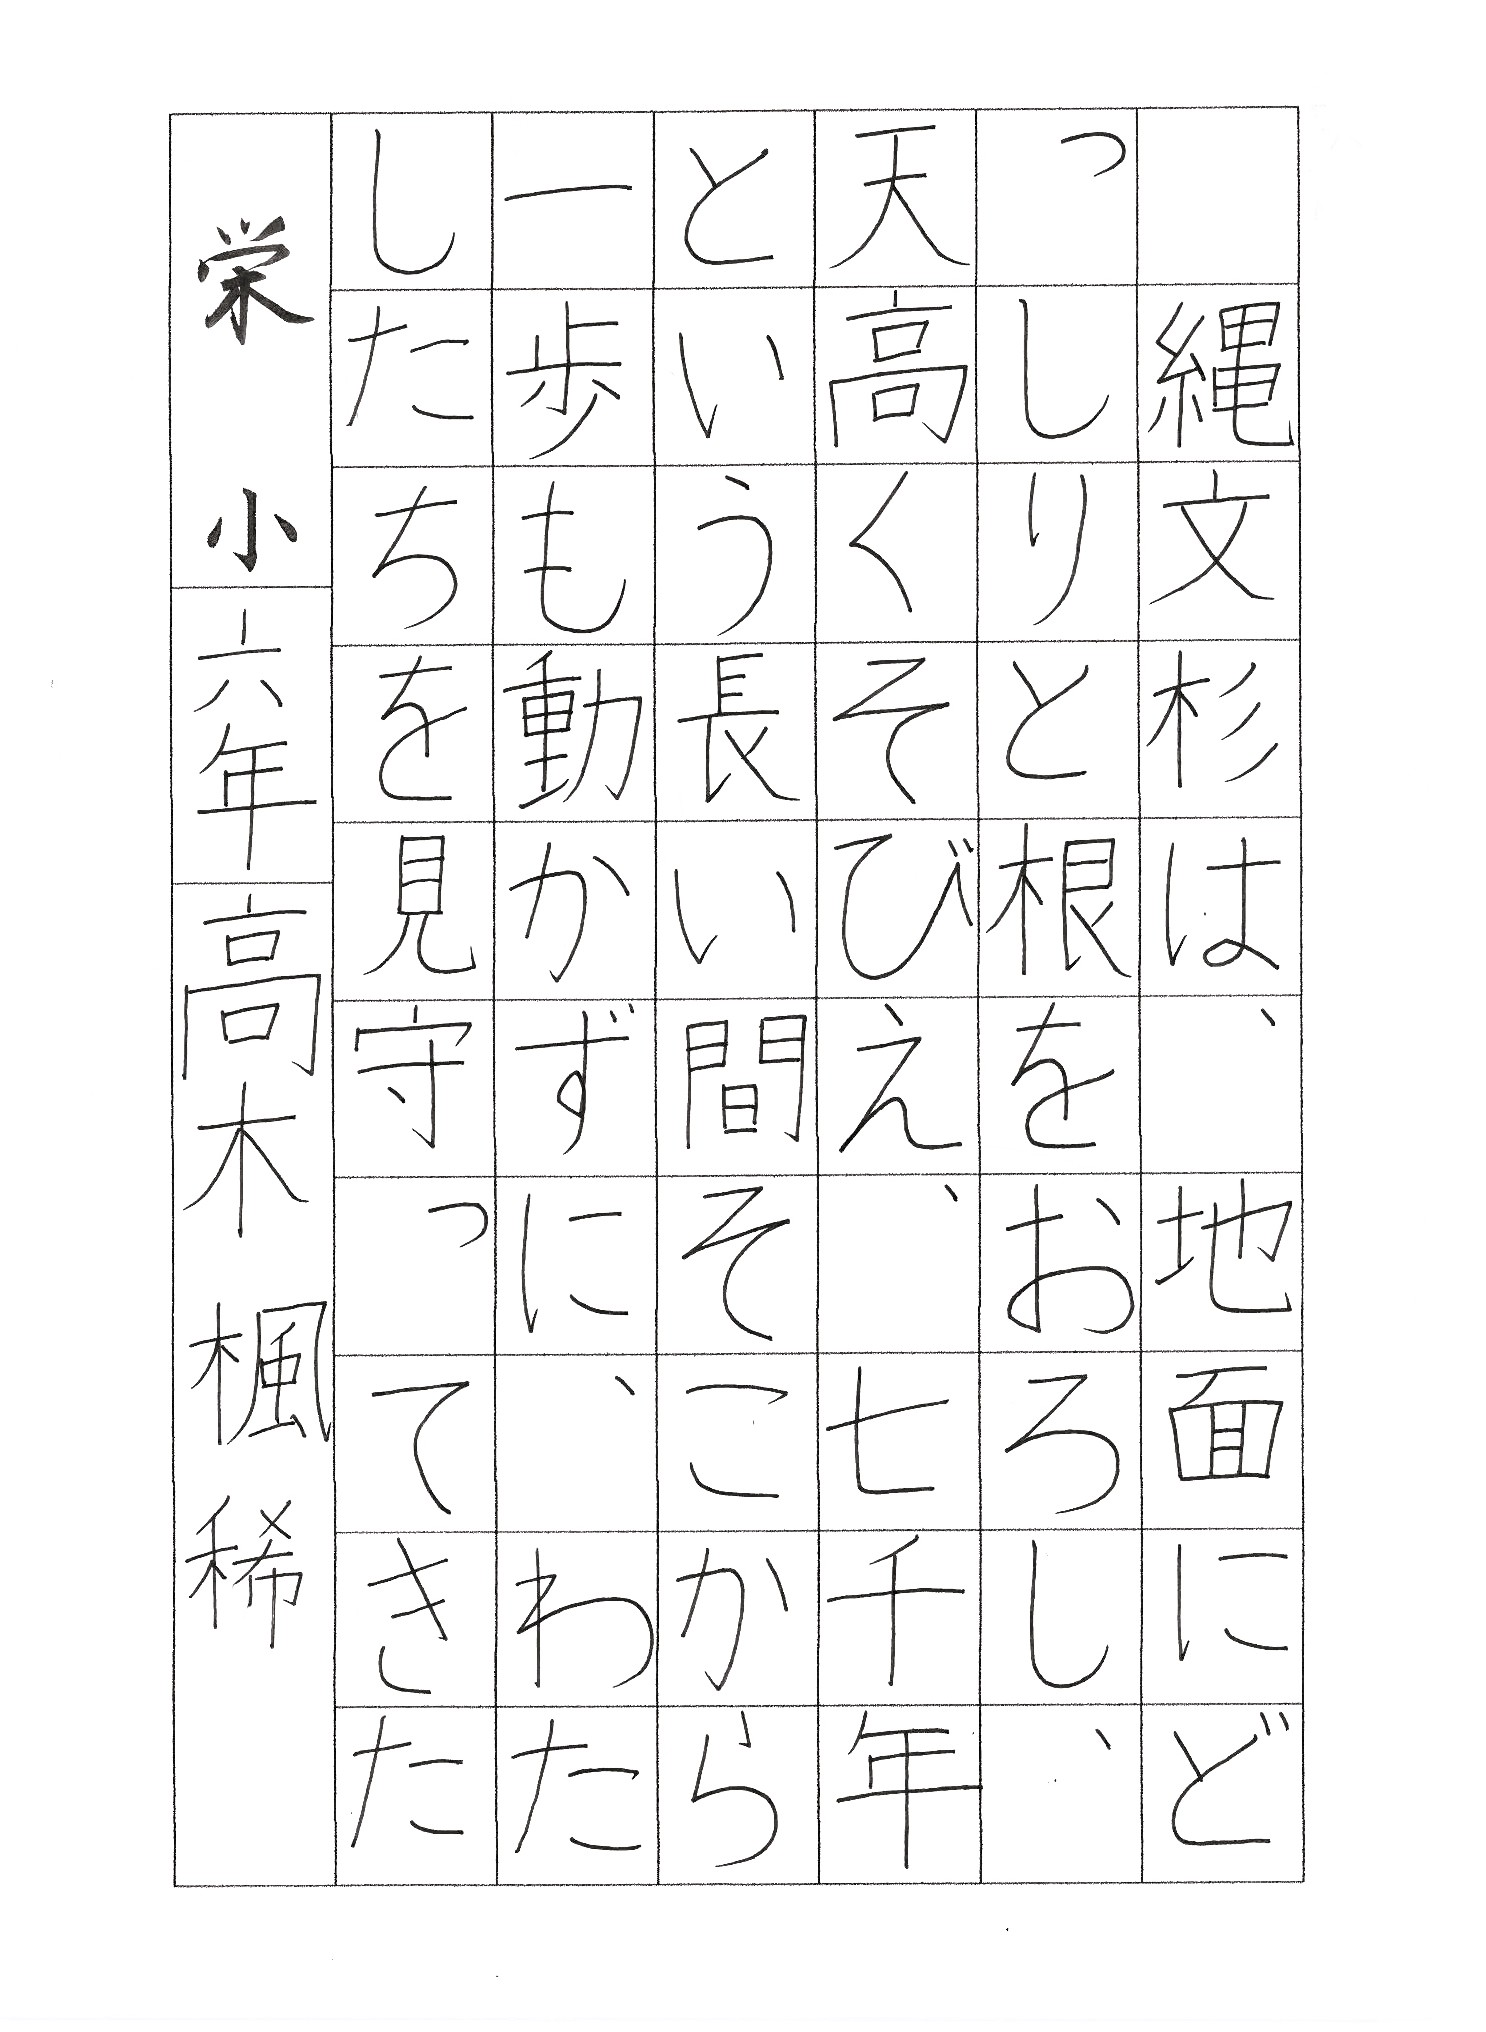 縄文杉は、地面にど
っしりと根をおろし、
天高くそびえ、七千年
という長い間そこから
一歩も動かずに、わた
したちを見守ってきた
栄小六年高木楓稀